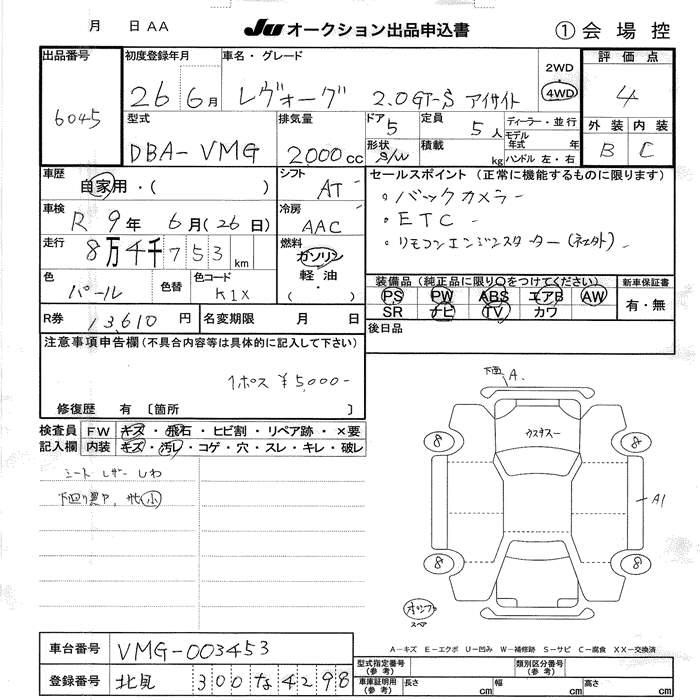 月 日 AA
JU オークション出品申込書
① 会場控
出品番号
6045
初度登録年月
26 6月
車名・グレード
レヴォーグ 2.0GT-S アイサイト
2WD
4WD
評価点
4
型式
DBA-VMG
排気量
2000cc
ドア
5
形状
S/W
定員
5人
積載
kg
ディーラー・並行
モデル
年式 年
ハンドル 左・右
外装 内装
B C
車歴
自家用・( )
シフト
AT
車検
R 9年 6月(26日)
冷房
AAC
走行
8万4千753km
燃料
ガソリン
軽油
・( )
色
パール
色替
色コード
K1X
R券
13,610円
名変期限 月 日
セールスポイント(正常に機能するものに限ります)
・バックカメラー
・ETC-
・リモコンエンジンスターター(社外)-
装備品(純正品に限り○をつけてください)
PS PW ABS エアB AW
SR ナビ TV カワ
新車保証書
有・無
後日品
注意事項申告欄(不具合内容等は具体的に記入して下さい)
1ポス ¥5,000-
修復歴 有 〔箇所 〕
検査員
記入欄
FW キズ・飛石・ヒビ割・リペア跡・×要
内装 キズ・汚レ・コゲ・穴・スレ・キレ・破レ
シートレザーしわ
小
下面 A.
ガラスキズ
8
8
A1
8
8
スペア
A-キズ E-エクボ U-凹み W-補修跡 S-サビ C-腐食 XX-交換済
車台番号
VMG-003453
登録番号
北見 300 な 4298
型式指定番号
(参考)
類別区分番号
(参考)
車庫証明用
(参考)
長さ cm 幅 cm 高さ cm